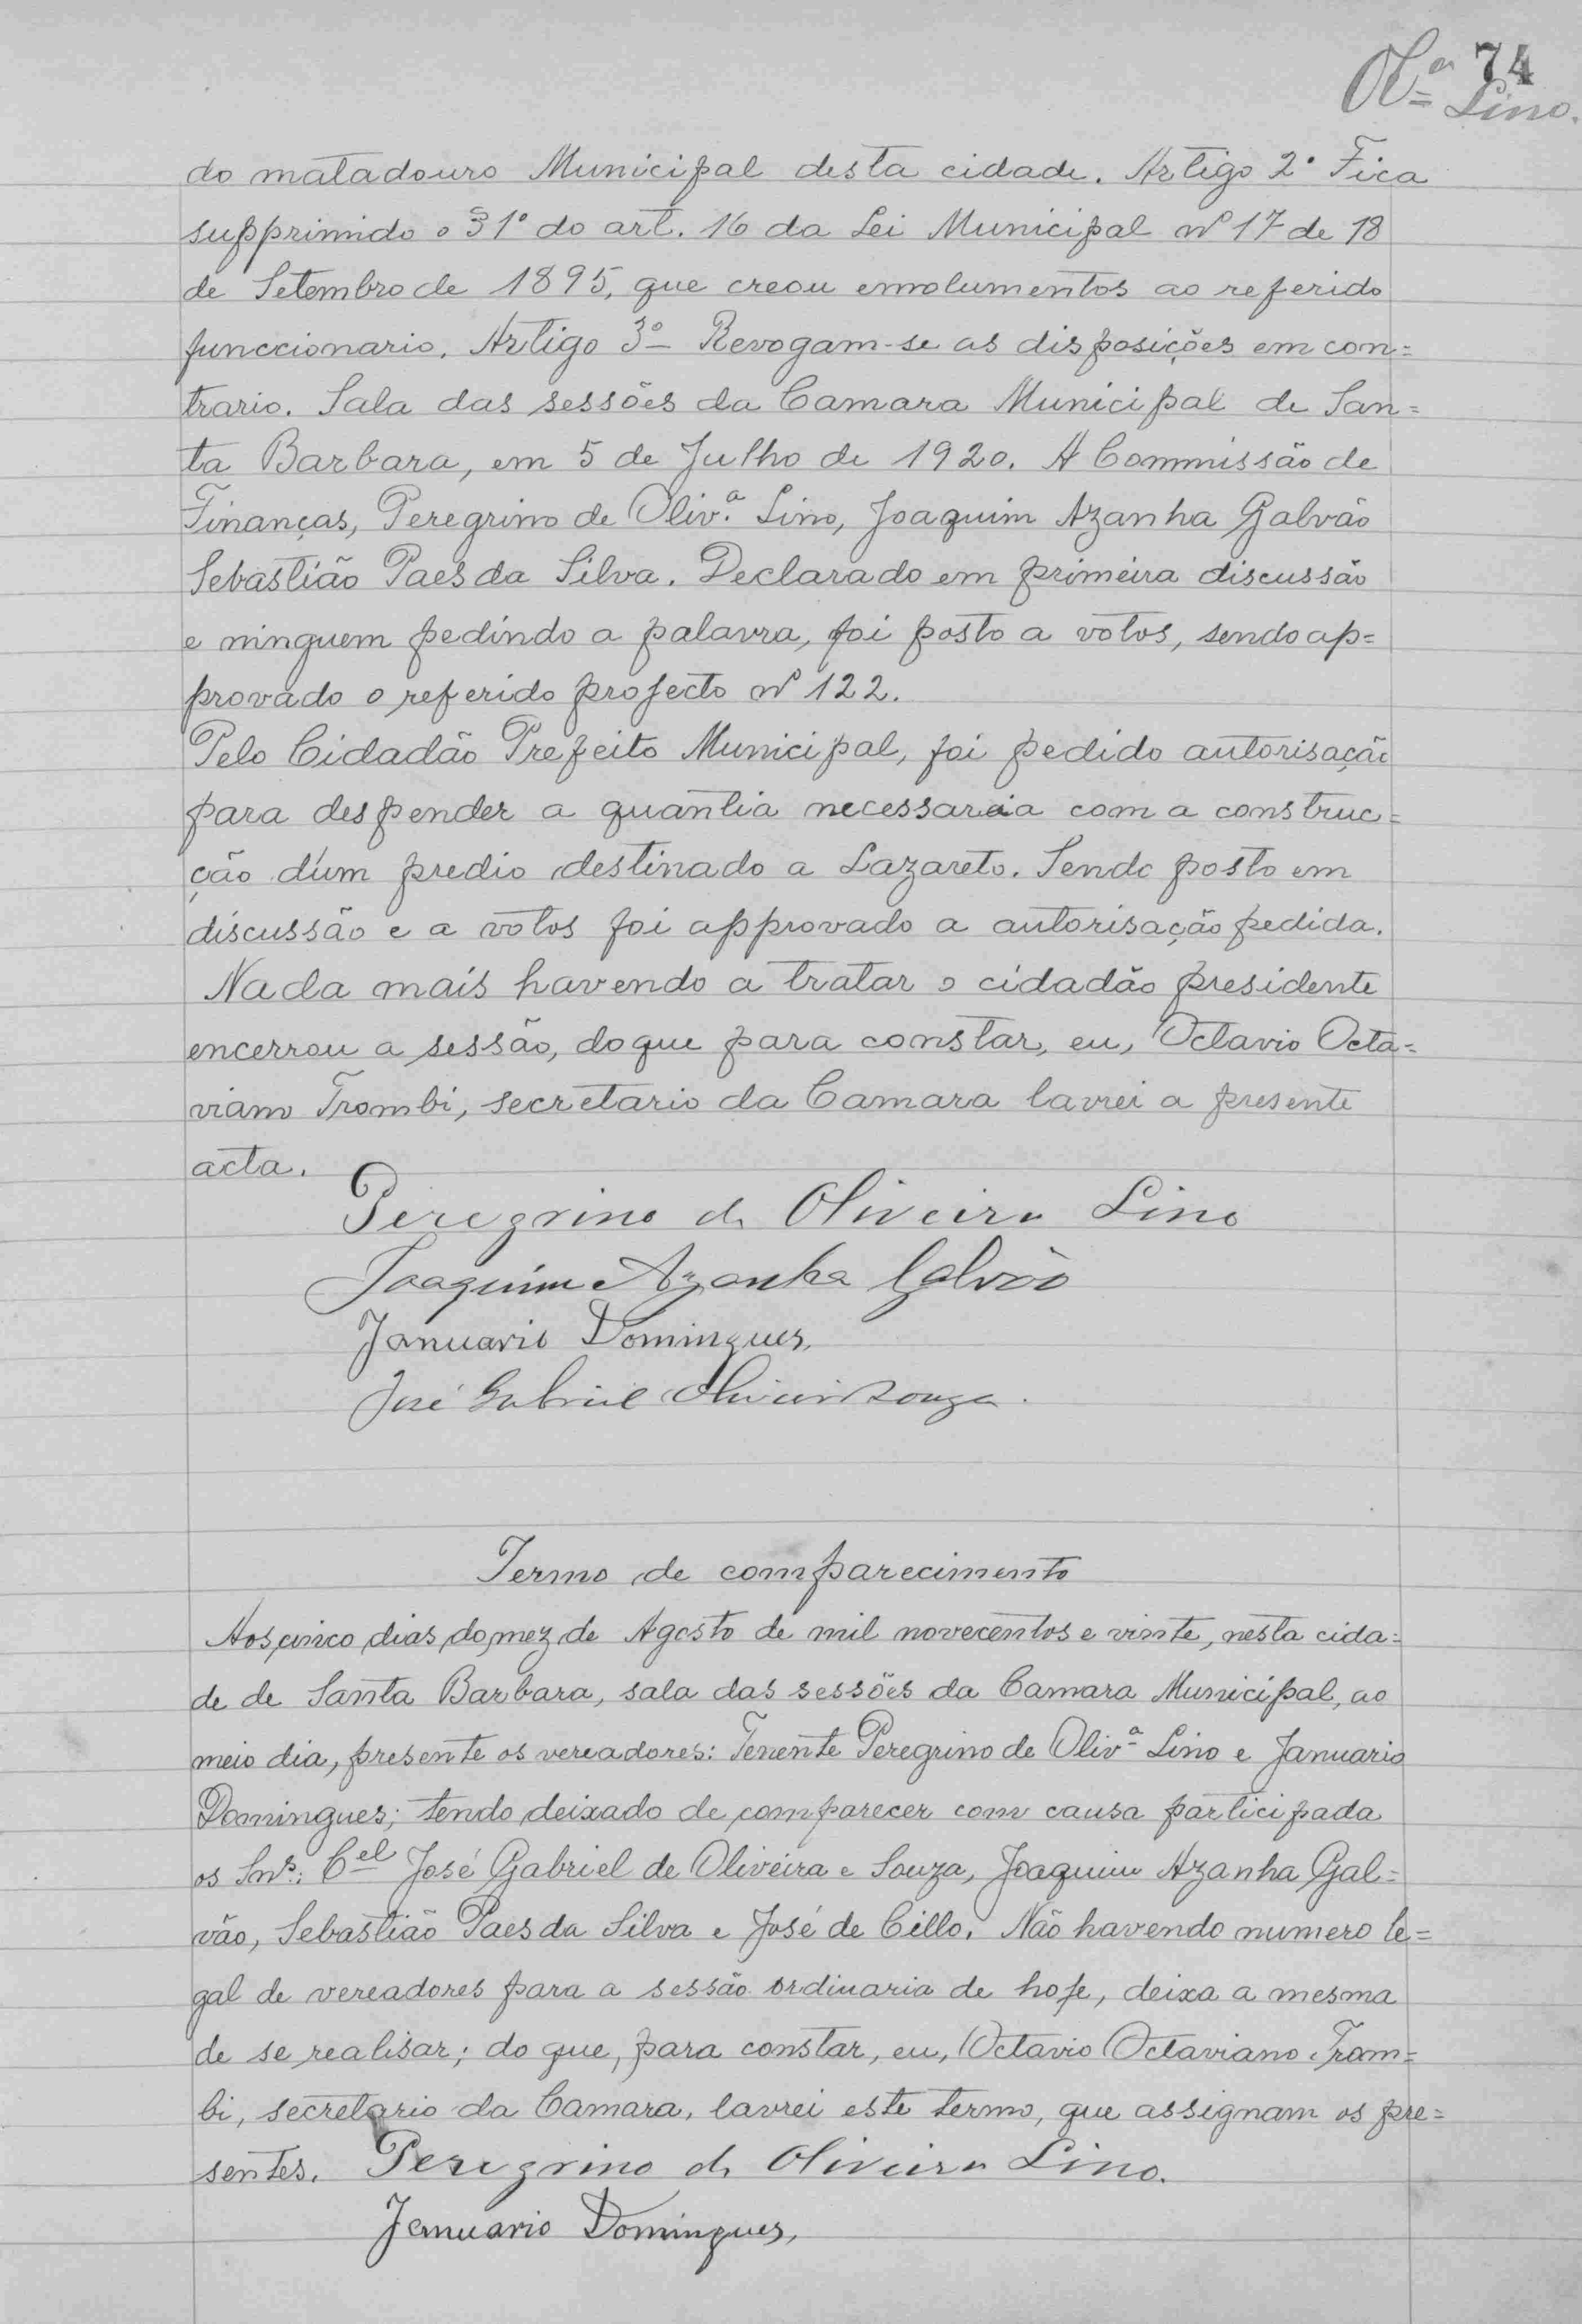 Olª 74
Lino.
do matadouro Municipal desta cidade. Artigo 2º Fica
supprimido o § 1º do art. 16 da Lei Municipal nº 17 de 18
de Setembro de 1895, que creou emolumentos ao referido
funccionario. Artigo 3º Revogam-se as disposições em con=
trario. Sala das sessões da Camara Municipal de San=
ta Barbara, em 5 de Julho de 1920. A Commissão de
Finanças, Peregrino de Olivª. Lino, Joaquim Azanha Galvão
Sebastião Paes da Silva. Declarado em primeira discussão
e ninguem pedindo a palavra, foi posto a votos, sendo ap=
provado o referido projecto nº 122.
Pelo Cidadão Prefeito Municipal, foi pedido autorisação
para despender a quantia necessaria com a construc=
ção d'um predio destinado a Lazareto. Sendo posto em
discussão e a votos foi approvado a autorisação pedida.
Nada mais havendo a tratar o cidadão presidente
encerrou a sessão, do que para constar, eu, Octavio Octa=
viano Trombi, secretario da Camara lavrei a presente
acta.
Peregrino de Oliveira Lino
Joaquim Azanha Galvão
Januario Domingues,
José Gabriel Oliveira Souza.
Termo de comparecimento
Aos cinco dias do mez de Agosto de mil novecentos e vinte, nesta cida=
de de Santa Barbara, sala das sessões da Camara Municipal, ao
meio dia, presente os vereadores: Tenente Peregrino de Olivª Lino e Januario
Domingues; tendo deixado de comparecer com causa participada
os Snrs: Cel José Gabriel de Oliveira e Souza, Joaquim Azanha Gal=
vão, Sebastião Paes da Silva e José de Cillo. Não havendo numero le=
gal de vereadores para a sessão ordinaria de hoje, deixa a mesma
de se realisar; do que, para constar, eu, Octavio Octaviano Trom=
bi, secretario da Camara, lavrei este termo, que assignam os pre=
sentes. Peregrino de Oliveira Lino.
Januario Domingues,